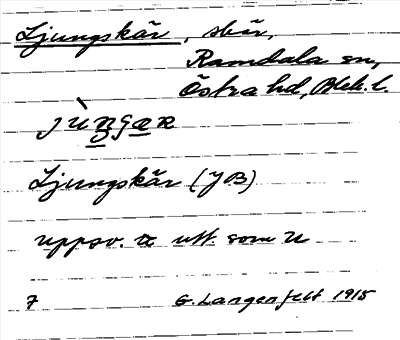 Ljungskär, skär,
Ramdala sn,
Östra hd, Blek. l.
Ljungskär (JB)
uppsv. utt. som
7 G. Langenfelt 1915